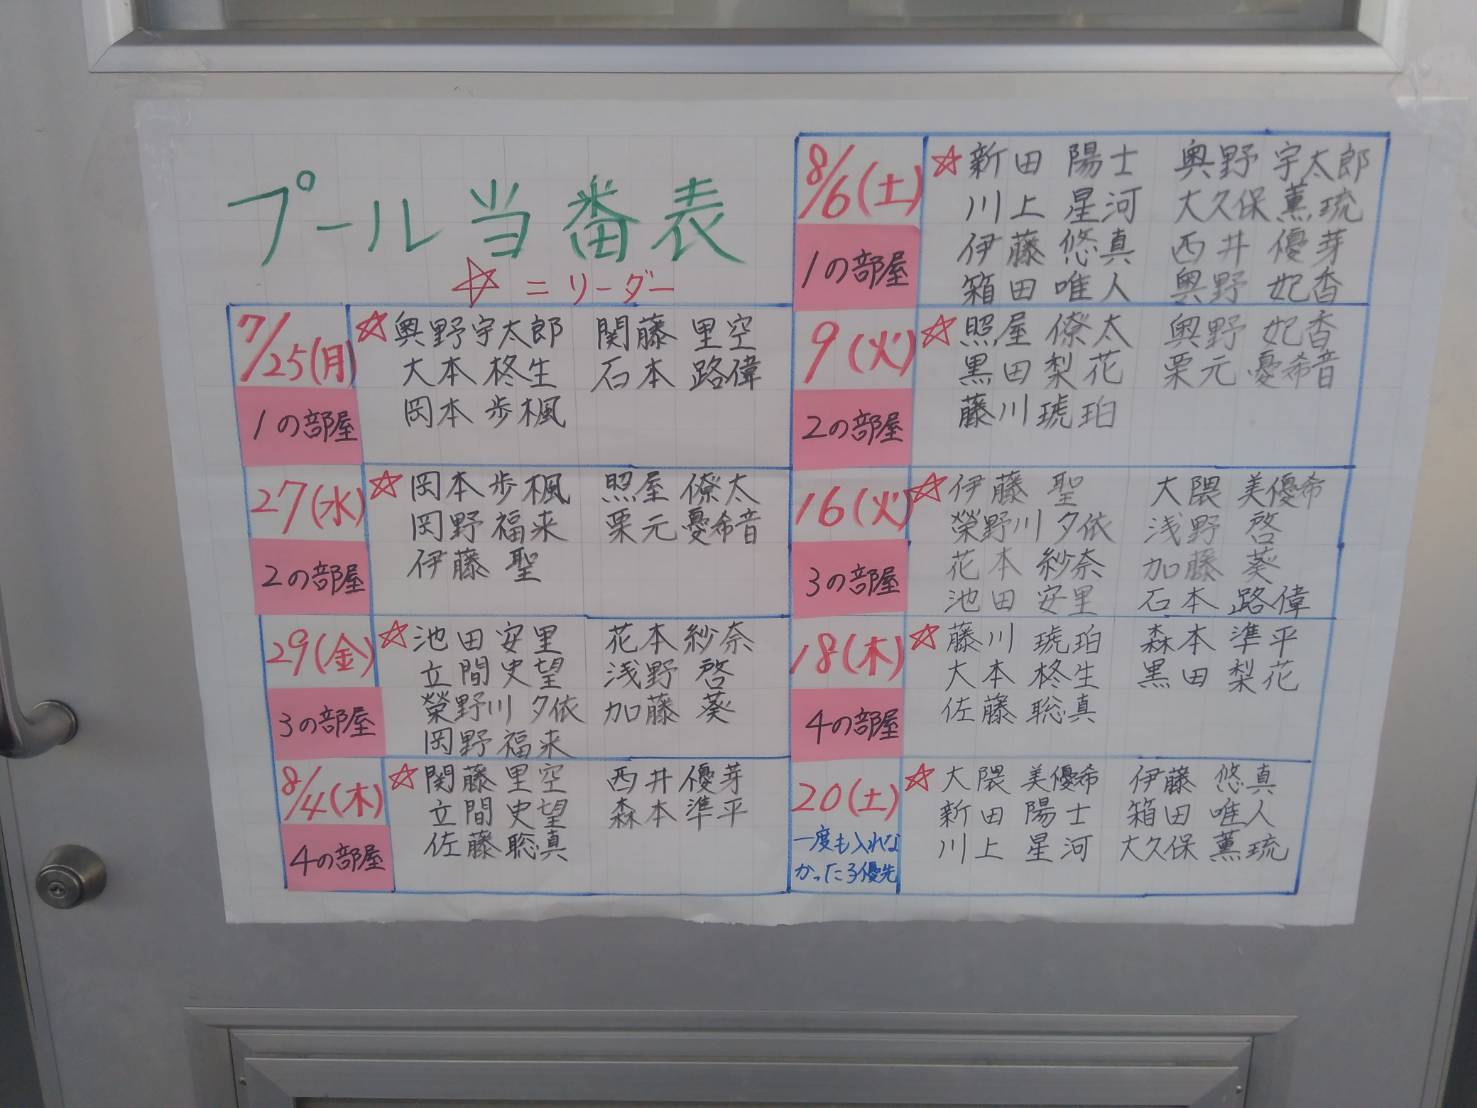 プール当番表
☆＝リーダー
7/25(月)
1の部屋
☆奥野宇太郎 関藤里空
大本柊生 石本路偉
岡本歩楓
27(水)
2の部屋
☆岡本歩楓 照屋僚太
岡野福来 栗元憂希音
伊藤聖
29(金)
3の部屋
☆池田安里 花本紗奈
立間史望 浅野啓
榮野川夕依 加藤葵
岡野福来
8/4(木)
4の部屋
☆関藤里空 西井優芽
立間史望 森本準平
佐藤聡真
8/6(土)
1の部屋
☆新田陽士 奥野宇太郎
川上星河 大久保薫琉
伊藤悠真 西井優芽
箱田唯人 奥野妃香
9(火)
2の部屋
☆照屋僚太 奥野妃香
黒田梨花 栗元憂希音
藤川琥珀
16(火)
3の部屋
☆伊藤聖 大隈美優希
榮野川夕依 浅野啓
花本紗奈 加藤葵
池田安里 石本路偉
18(木)
4の部屋
☆藤川琥珀 森本準平
大本柊生 黒田梨花
佐藤聡真
20(土)
一度も入れな
かった子優先
☆大隈美優希 伊藤悠真
新田陽士 箱田唯人
川上星河 大久保薫琉